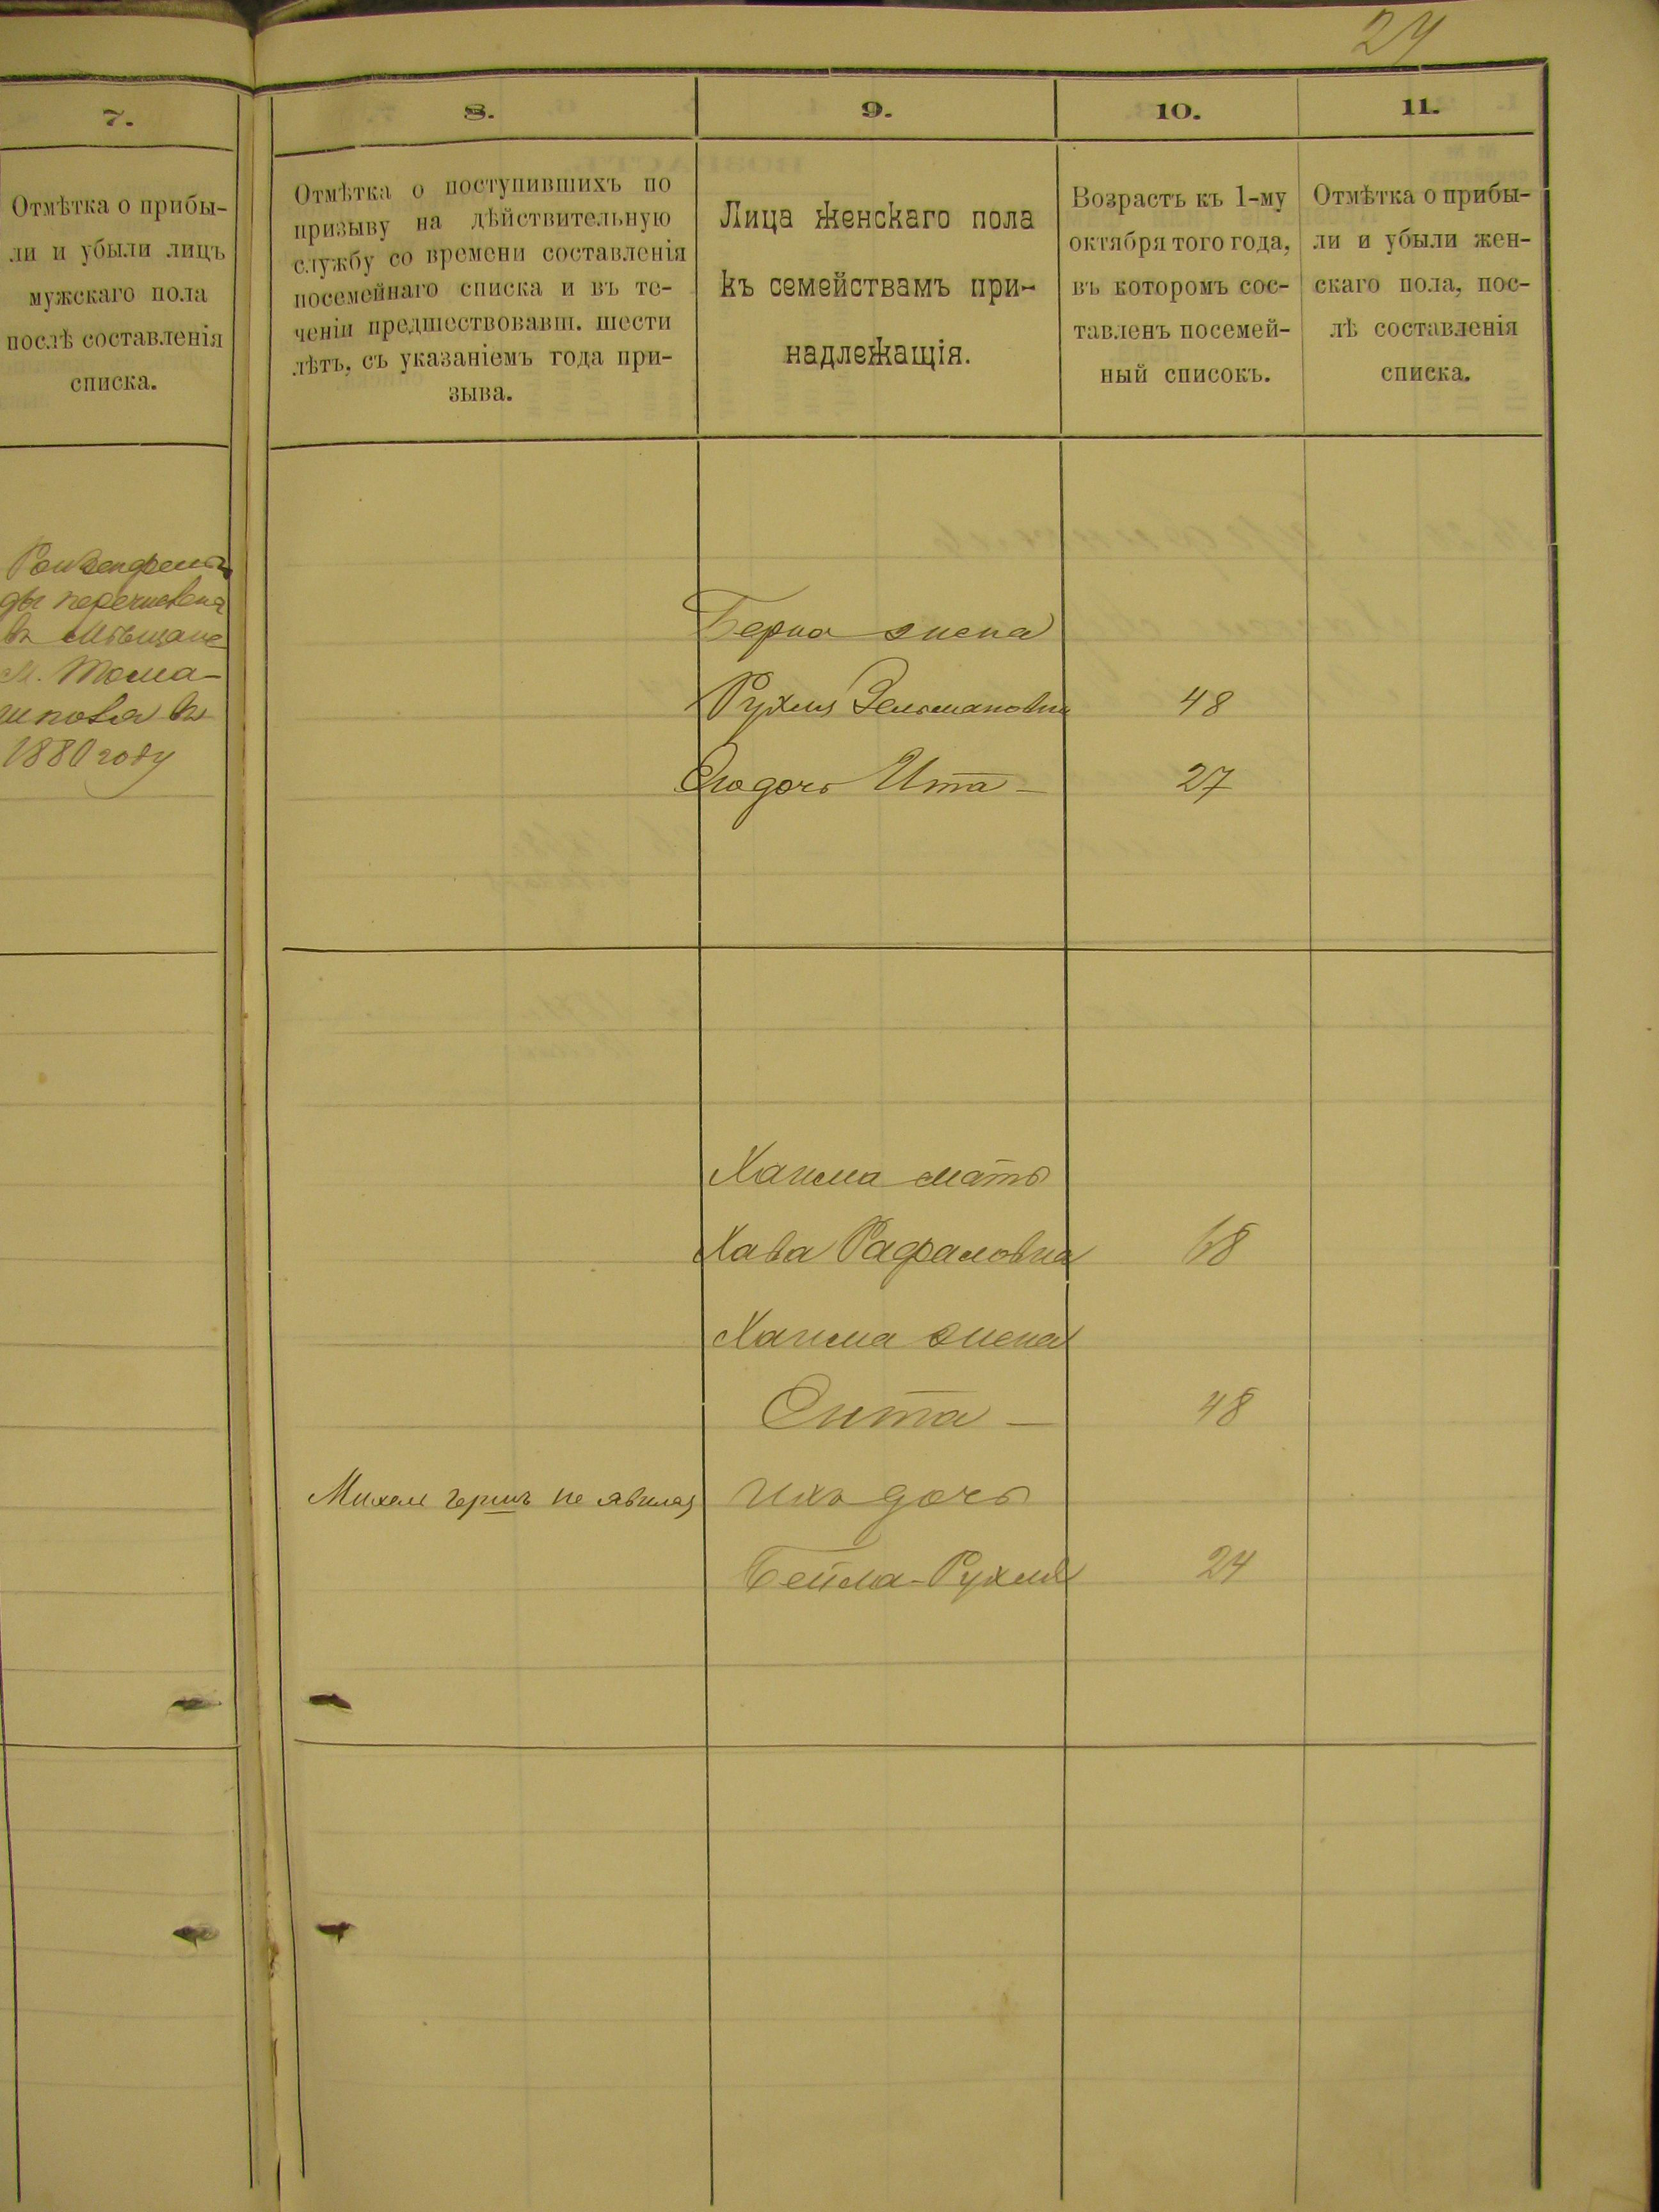 24
7.
8.
9.
10.
11.
Отмѣтка о прибы-
ли и убыли лицъ
мужскаго пола
послѣ составленія
списка.
Отмѣтка о поступившихъ по
призыву на дѣйствительную
службу со времени составленія
посемейнаго списка и въ те-
ченіи предшествовавш. шести
лѣтъ, съ указаніемъ года при-
зыва.
Лица женскаго пола
къ семействамъ при-
надлежащія.
Возрастъ къ 1-му
октября того года,
въ которомъ сос-
тавленъ посемей-
ный списокъ.
Отмѣтка о прибы-
ли и убыли жен-
скаго пола, пос-
лѣ составленія
списка.
ды перечислена
въ Мѣщане
М. Тома-
шпола въ
1880 году
Берка жена
Рухля Зельмановна 48
Его дочь Ита - 27
Хаима мать
Хава Рафаловна 68
Хаима жена
Сита - 48
Михель Гершъ не явился ихъ дочь
Бейла-Рухля 24